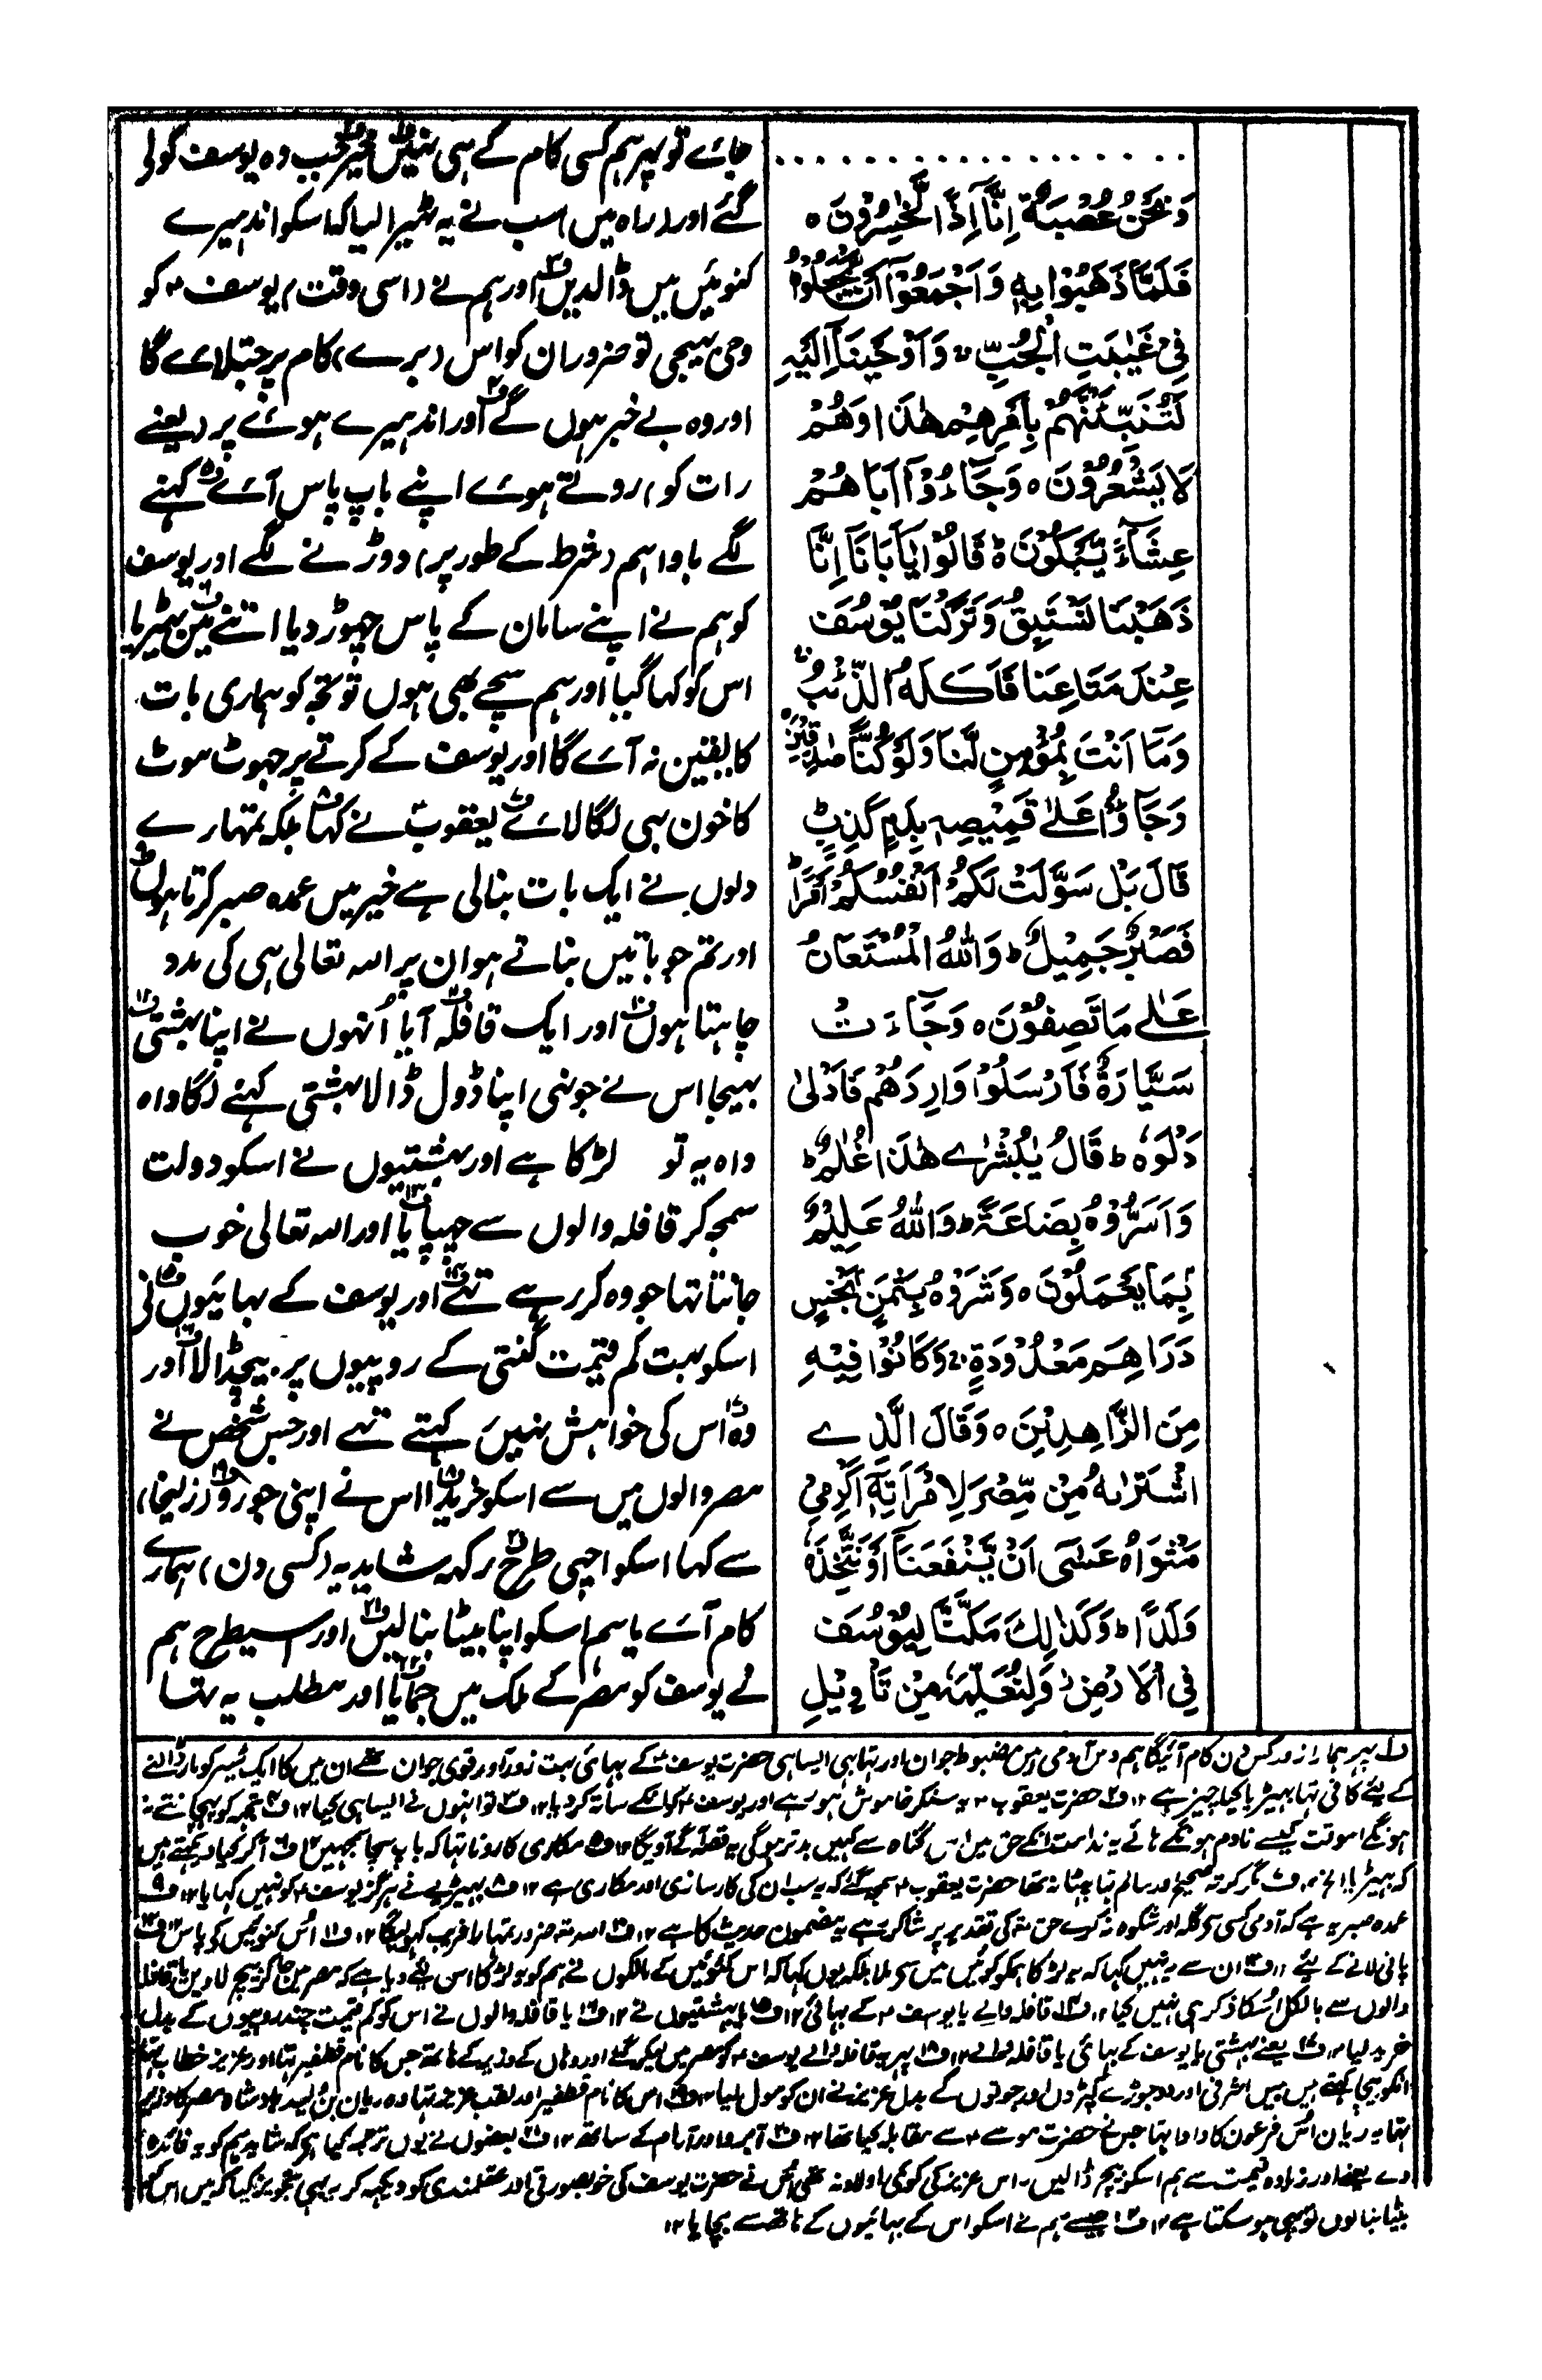 وَنَحْنُ عُصْبَةٌ اِنَّآ اِذًا لَّخٰسِرُوْنَ ہ
فَلَمَّا ذَهَبُوْا بِهٖ وَاَجْمَعُوْٓا اَنْ يَّجْعَلُوْهُ
فِيْ غَيٰبَتِ الْجُبِّ ۚ وَاَوْحَيْنَآ اِلَيْهِ
لَتُنَبِّئَنَّهُمْ بِاَمْرِهِمْ هٰذَا وَهُمْ
لَا يَشْعُرُوْنَ ہ وَجَآءُوْٓا اَبَاهُمْ
عِشَآءً يَّبْكُوْنَ ہ قَالُوْا يٰٓاَبَانَآ اِنَّا
ذَهَبْنَا نَسْتَبِقُ وَتَرَكْنَا يُوْسُفَ
عِنْدَ مَتَاعِنَا فَاَكَلَهُ الذِّئْبُ ۚ
وَمَآ اَنْتَ بِمُؤْمِنٍ لَّنَا وَلَوْ كُنَّا صٰدِقِيْنَ ہ
وَجَآءُوْ عَلٰى قَمِيْصِهٖ بِدَمٍ كَذِبٍ ط
قَالَ بَلْ سَوَّلَتْ لَكُمْ اَنْفُسُكُمْ اَمْرًا ط
فَصَبْرٌ جَمِيْلٌ ط وَاللّٰهُ الْمُسْتَعَانُ
عَلٰے مَا تَصِفُوْنَ ہ وَجَآءَتْ
سَيَّارَةٌ فَاَرْسَلُوْا وَارِدَهُمْ فَاَدْلٰى
دَلْوَهٗ ط قَالَ يٰبُشْرٰے هٰذَا غُلٰمٌ ط
وَاَسَرُّوْهُ بِضَاعَةً ط وَاللّٰهُ عَلِيْمٌۢ
بِمَا يَعْمَلُوْنَ ہ وَشَرَوْهُ بِثَمَنٍۭ بَخْسٍ
دَرَاهِمَ مَعْدُوْدَةٍ ۚ وَكَانُوْا فِيْهِ
مِنَ الزَّاهِدِيْنَ ہ وَقَالَ الَّذِے
اشْتَرٰىهُ مِنْ مِّصْرَ لِامْرَاَتِهٖٓ اَكْرِمِيْ
مَثْوَاهُ عَسٰٓى اَنْ يَّنْفَعَنَآ اَوْ نَتَّخِذَهٗ
وَلَدًا ط وَكَذٰلِكَ مَكَّنَّا لِيُوْسُفَ
فِي الْاَرْضِ ز وَلِنُعَلِّمَهٗ مِنْ تَاْوِيْلِ
جائے تو پہر ہم کسی کام کے ہی نہیں خیر جب وہ یوسف کو لی
گئے اور (راہ میں) سب نے یہ ٹہیرا لیا کہ اسکو اندہیرے
کنوئیں میں ڈالدیں اور ہم نے (اسی وقت) یوسف ؑ کو
وحی بہیجی تو ضرور ان کو اس (برے) کام پر جتلائے گا
اور وہ بے خبر ہوں گے اور اندہیرے ہوئے پر (یعنے
رات کو) روتے ہوئے اپنے باپ پاس آئے کہنے
لگے باوا ہم (شرط کے طور پر) دوڑنے لگے اور یوسف
کو ہم نے اپنے سامان کے پاس چہوڑ دیا اتنے میں بہیڑیا
اس کو کہا گیا اور ہم سچے بھی ہوں تو تجہ کو ہماری بات
کا یقین نہ آئے گا اور یوسف کے کرتے پر جہوٹ موٹ
کا خون بہی لگا لائے یعقوبؑ نے کہا بلکہ تمہارے
دلوں نے ایک بات بنا لی ہے خیر میں عمدہ صبر کرتا ہوں
اور تم جو باتیں بناتے ہو ان پر اللہ تعالی ہی کی مدد
چاہتا ہوں اور ایک قافلہ آیا اُنہوں نے اپنا بہشتی
بہیجا اس نے جونہی اپنا ڈول ڈالا بہشتی کہنے لگا واہ
واہ یہ تو لڑکا ہے اور بہشتیوں نے اسکو دولت
سمجہ کر قافلہ والوں سے چہپایا اور اللہ تعالی خوب
جانتا تہا جو وہ کر رہے تہے اور یوسف کے بہائیوں نی
اسکو بہت کم قیمت گنتی کے روپیوں پر بیچ ڈالا اور
وہ اس کی خواہش نہیں رکہتے تہے اور جس شخص نے
مصر والوں میں سے اسکو خریدا اس نے اپنی جورو (زلیخا)
سے کہا اسکو اچہی طرح رکہہ شاید یہ (کسی دن) ہمارے
کام آئے یا ہم اسکو اپنا بیٹا بنا لیں اور اسیطرح ہم
نے یوسف کو مصر کے ملک میں جمایا اور مطلب یہ تہا
ف۱ پہر ہمارا زور کس دن کام آئیگا ہم دس آدمی ہیں مضبوط جوان اور تہا بہی ایسا ہی حضرت یوسف ؑ کے بہائی بہت زور آور قوی جوان تہے ان میں کا ایک شیر کو مار ڈالنے
کے لئے کافی تہا بہیڑیا کیا چیز ہے ۱۲ ف۲ حضرت یعقوب ؑ یہ سنکر خاموش ہو رہے اور یوسف ؑ کو انکے ساتہ کر دیا ۱۲ ف۳ تو انہوں نے ایسا ہی کیا ۱۲ ف۴ تجہ کو پہچانتے نہ
ہونگے اسوقت کیسے نادم ہونگے ہائے یہ ندامت انکے حق میں اس گناہ سے کہیں بدتر ہوگی یہ قصہ آگے آویگا ۱۲ ف۵ مکاری کا رونا تہا کہ باپ سچا سمجہیں ۱۲ ف۶ آ کر کیا دیکہتے ہیں
کہ بہیڑیا الخ ۱۲ ف۷ مگر کرتہ صحیح اور سالم تہا پہٹا نہ تھا حضرت یعقوب ؑ سمجہ گئے کہ یہ سب ان کی کارسازی اور مکاری ہے ۱۲ ف۸ بہیڑیے نے ہرگز یوسف ؑ کو نہیں کہایا ۱۲ ف۹
عمدہ صبر یہ ہے کہ آدمی کسی سی گلہ اور شکوہ نہ کرے حق تعالی کی تقدیر پر شاکر رہے یہ مضمون حدیث کا ہے ۱۲ ف۱۰ اللہ ضرور تمہارا فریب کہولیگا ۱۲ ف۱۱ اُس کنوئیں کو پاس ۱۲ ف۱۲
پانی لانے کے لیے ۱۲ ف۱۳ ان سے یہ نہیں کہا کہ یہ لڑکا ہمکو کوئیں میں سی ملا بلکہ یوں کہا کہ اس کنوئیں کے مالکوں نے ہم کو یہ لڑکا اس لیے دیا ہے کہ مصر میں جا کر بیچ لاویں یا قافلہ
والوں سے بالکل اُسکا ذکر ہی نہیں کیا ۱۲ ف۱۴ قافلہ والے یا یوسف ؑ کے بہائی ۱۲ ف۱۵ یا بہشتیوں نے ۱۲ ف۱۶ یا قافلہ والوں نے اس کو کم قیمت چند روپیوں کے بدل
خرید لیا ۱۲ ف۱۷ یعنے بہشتی یا یوسف کے بہائی یا قافلہ والے ۱۲ ف۱۸ پہر یہ قافلہ والے یوسف ؑ کو مصر میں لیکر گئے اور وہاں کے وزیر کے ہاتہ جس کا نام قطفیر تہا اور عزیز خطاب تہا
انکو بیچا کہتے ہیں بیس اشرفی اور دو جوڑے کپڑوں اور جوتوں کے بدل عزیز نے ان کو مول لیا ۱۲ ف۱۹ اس کا نام قطفیر اور لقب عزیز تہا وہ ریان بن ولید بادشاہ مصر کا وزیر
تہا یہ ریان اُس فرعون کا دادا تہا جس نے حضرت موسے ؑ سے مقابلہ کیا تھا ۱۲ ف۲۰ آبرو اور آرام کے ساتھ ۱۲ ف۲۱ بعضوں نے یوں ترجمہ کیا ہی کہ شاید ہم کو یہ فائدہ
دے یعنے اور زیادہ قیمت سے ہم اسکو بیچ ڈالیں۔ اس عزیز کی کوئی اولاد نہ تھی اُس نے حضرت یوسف کی خوبصورتی اور عقلمندی کو دیکہہ کر یہی تجویز کیا کہ میں اس کو
بیٹا بنا لوں تو بہی ہو سکتا ہے ۱۲ ف۲۲ جیسے ہم نے اسکو اس کے بہائیوں کے ہاتھ سے بچایا ۱۲